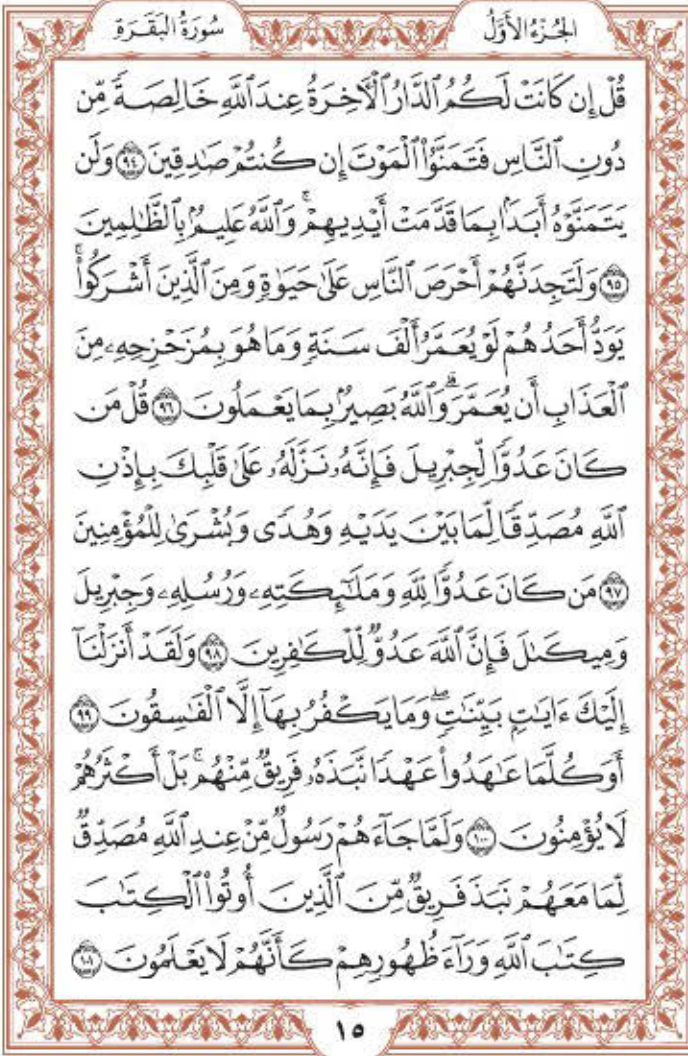 الجُزْءُ الأَوَّلُ سُورَةُ البَقَرَةِ
قُلْ إِن كَانَتْ لَكُمُ ٱلدَّارُ ٱلْأٓخِرَةُ عِندَ ٱللَّهِ خَالِصَةً مِّن
دُونِ ٱلنَّاسِ فَتَمَنَّوُا۟ ٱلْمَوْتَ إِن كُنتُمْ صَٰدِقِينَ ۝٩٤ وَلَن
يَتَمَنَّوْهُ أَبَدًۢا بِمَا قَدَّمَتْ أَيْدِيهِمْ ۚ وَٱللَّهُ عَلِيمٌۢ بِٱلظَّٰلِمِينَ
۝٩٥ وَلَتَجِدَنَّهُمْ أَحْرَصَ ٱلنَّاسِ عَلَىٰ حَيَوٰةٍ وَمِنَ ٱلَّذِينَ أَشْرَكُوا۟ ۚ
يَوَدُّ أَحَدُهُمْ لَوْ يُعَمَّرُ أَلْفَ سَنَةٍ وَمَا هُوَ بِمُزَحْزِحِهِۦ مِنَ
ٱلْعَذَابِ أَن يُعَمَّرَ ۗ وَٱللَّهُ بَصِيرٌۢ بِمَا يَعْمَلُونَ ۝٩٦ قُلْ مَن
كَانَ عَدُوًّا لِّجِبْرِيلَ فَإِنَّهُۥ نَزَّلَهُۥ عَلَىٰ قَلْبِكَ بِإِذْنِ
ٱللَّهِ مُصَدِّقًا لِّمَا بَيْنَ يَدَيْهِ وَهُدًى وَبُشْرَىٰ لِلْمُؤْمِنِينَ
۝٩٧ مَن كَانَ عَدُوًّا لِّلَّهِ وَمَلَٰٓئِكَتِهِۦ وَرُسُلِهِۦ وَجِبْرِيلَ
وَمِيكَىٰلَ فَإِنَّ ٱللَّهَ عَدُوٌّ لِّلْكَٰفِرِينَ ۝٩٨ وَلَقَدْ أَنزَلْنَآ
إِلَيْكَ ءَايَٰتٍۭ بَيِّنَٰتٍ ۖ وَمَا يَكْفُرُ بِهَآ إِلَّا ٱلْفَٰسِقُونَ ۝٩٩
أَوَكُلَّمَا عَٰهَدُوا۟ عَهْدًا نَّبَذَهُۥ فَرِيقٌ مِّنْهُم ۚ بَلْ أَكْثَرُهُمْ
لَا يُؤْمِنُونَ ۝١٠٠ وَلَمَّا جَآءَهُمْ رَسُولٌ مِّنْ عِندِ ٱللَّهِ مُصَدِّقٌ
لِّمَا مَعَهُمْ نَبَذَ فَرِيقٌ مِّنَ ٱلَّذِينَ أُوتُوا۟ ٱلْكِتَٰبَ
كِتَٰبَ ٱللَّهِ وَرَآءَ ظُهُورِهِمْ كَأَنَّهُمْ لَا يَعْلَمُونَ ۝١٠١
١٥